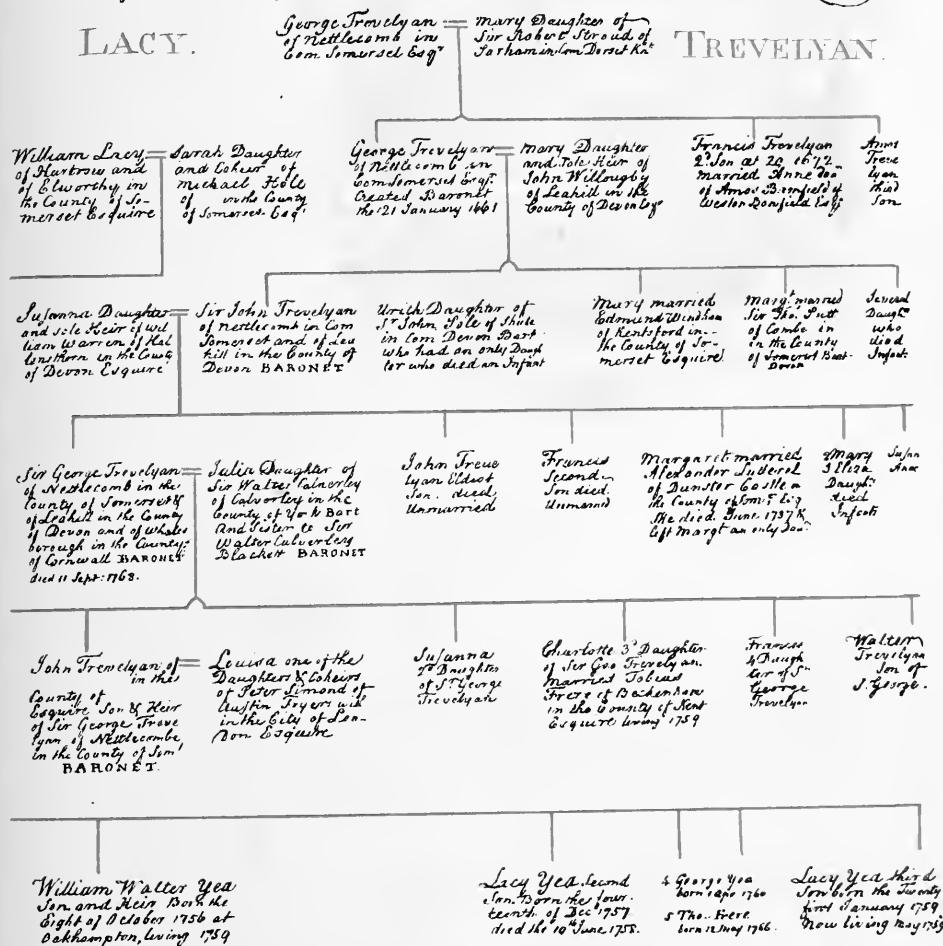 George Trevelyan
of Nettlecomb in
Com Somerset Esqr
Mary Daughter of
Sir Robert Stroud of
Parham in Com Dorset Knt
LACY.
TREVELYAN.
William Lacy
of Hartrow and
of Elworthy in
the County of So-
merset Esquire
Sarah Daughter
and Coheir of
Michael Hole
of in the County
of Somerset Esqr
George Trevelyan
of Nettlecomb in
Com Somerset Esqr
Created Baronet
the 21 January 1661
Mary Daughter
and Sole Heir of
John Willougby
of Leahill in the
County of Devon Esqr
Francis Trevelyan
2d Son at 20 1672
married Anne Dau
of Amos Bomfield of
Weston Bomfield Esqr
Amos
Treve
lyan
third
Son
Susanna Daughter
and sole Heir of Wil
liam Warren of Hal
lensthorn in the County
of Devon Esquire
Sir John Trevelyan
of Nettlecomb in Com
Somerset and of Lea
hill in the County of
Devon BARONET
Urith Daughter of
Sr John Pole of Shute
in Com Devon Bart
who had an only Daugh
ter who died an Infant
Mary married
Edmund Windham
of Kentsford in
the County of So-
merset Esquire
Margt married
Sir Tho. Putt
of Combe in
in the County
of Somerset Bart
Devon
Several
Daughts
who
died
Infants
Sir George Trevelyan
of Nettlecomb in the
County of Somerset &
of Leahill in the County
of Devon and of Whales
borough in the County
of Cornwall BARONET
died 11 Sept: 1768.
Julia Daughter of
Sir Walter Calverley
of Calverley in the
County of York Bart
and Sister to Sir
Walter Calverley
Blackett BARONET
John Treve
lyan Eldest
Son. died
Unmarried
Francis
Second
Son died
Unmarried
Margaret married
Alexander Luterel
of Dunster Castle in
the County of Somt Esq
She died June 1737 &
left Margt an only Daur
Mary
& Eliza
Daughts
died
Infants
Susan
Anne
John Trevelyan of
in the
County of
Esquire Son & Heir
of Sir George Treve
lyan of Nettlecombe
in the County of Somt
BARONET.
Louisa one of the
Daughters & Coheirs
of Peter Simond of
Austin Fryers
in the City of Lon-
Don Esquire
Susanna
Daughter
of Sr George
Trevelyan
Charlotte 3d Daughter
of Sir Geo Trevelyan
Married Tobias
Frere of Beckenham
in the County of Kent
Esquire living 1759
Frances
4 Daugh
ter of Sr
George
Trevelyan
Walter
Trevelyan
Son of
S. George.
William Walter Yea
Son and Heir Born the
Eight of October 1756 at
Oakhampton, living 1759
Lacy Yea Second
Son. Born the four
teenth of Decr 1757
died the 10th June 1758.
4 George Yea
born 1 Apo 1760
5 Tho. Frere
born 12 May 1766.
Lacy Yea third
Son born the Twenty
first January 1759.
Now living May 1759